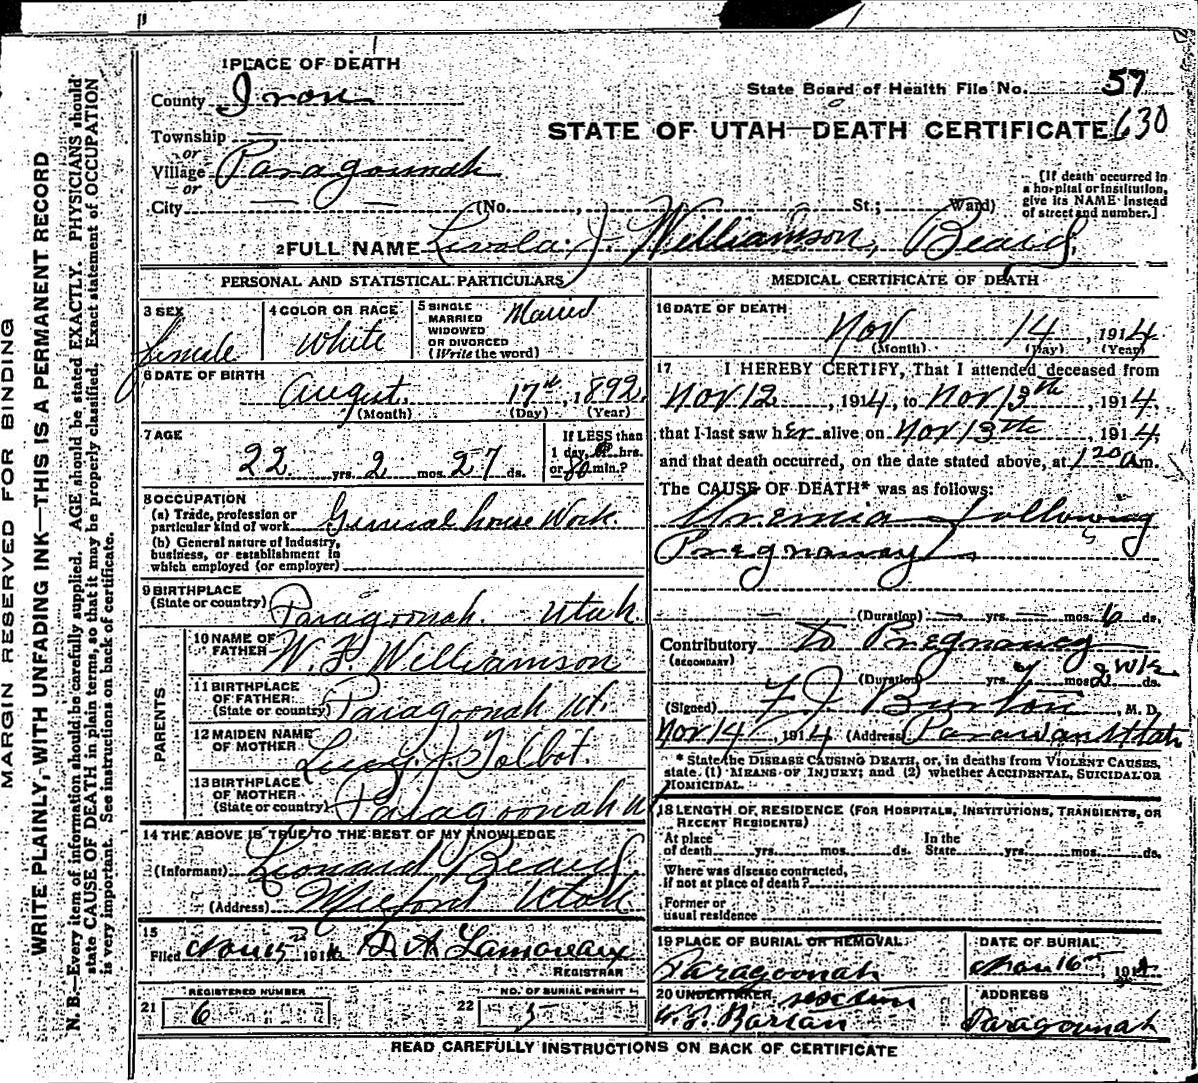 MARGIN RESERVED FOR BINDING
WRITE PLAINLY, WITH UNFADING INK—THIS IS A PERMANENT RECORD
N. B.—Every item of information should be carefully supplied. AGE should be stated EXACTLY. PHYSICIANS should
state CAUSE OF DEATH in plain terms, so that it may be properly classified. Exact statement of OCCUPATION
is very important. See instructions on back of certificate.
1 PLACE OF DEATH
County Iron
State Board of Health File No. 57
Township —
STATE OF UTAH—DEATH CERTIFICATE 630
or
Village Paragoonah
or
[If death occurred in
a hospital or institution,
give its NAME instead
of street and number.]
City — — (No. , St.; Ward)
2 FULL NAME J. Williamson, Beard,
PERSONAL AND STATISTICAL PARTICULARS
3 SEX
female
4 COLOR OR RACE
White
5 SINGLE
MARRIED
WIDOWED
OR DIVORCED
(Write the word)
Married
6 DATE OF BIRTH
August. 17th, 1892
(Month) (Day) (Year)
7 AGE
22 yrs. 2 mos. 27 ds.
If LESS than
1 day, hrs.
or min.?
8 OCCUPATION
(a) Trade, profession or
particular kind of work General house Work.
(b) General nature of industry,
business, or establishment in
which employed (or employer)
9 BIRTHPLACE
(State or country) Paragoonah. Utah.
PARENTS
10 NAME OF
FATHER W. F. Williamson
11 BIRTHPLACE
OF FATHER
(State or country) Paragoonah Ut.
12 MAIDEN NAME
OF MOTHER Lucy A. Tolbot.
13 BIRTHPLACE
OF MOTHER
(State or country) Paragoonah Ut
14 THE ABOVE IS TRUE TO THE BEST OF MY KNOWLEDGE
(Informant) Leonard Beard
(Address) Milford Utah
15
Filed Nov 15th 1914 D A Lamoreaux
REGISTRAR
21 REGISTERED NUMBER
6
22 NO. OF BURIAL PERMIT
5
MEDICAL CERTIFICATE OF DEATH
16 DATE OF DEATH
Nov 14, 1914
(Month) (Day) (Year)
17 I HEREBY CERTIFY, That I attended deceased from
Nov 12, 1914, to Nov 13th, 1914,
that I last saw her alive on Nov 13th, 1914,
and that death occurred, on the date stated above, at 1 20 Am.
The CAUSE OF DEATH* was as follows:
Uremia following
Pregnancy
(Duration) — yrs. — mos. 6 ds.
Contributory to Pregnancy
(SECONDARY)
(Duration) yrs. 7 mos. 2 Wks ds.
(Signed) F. J. Burton, M. D.
Nov 14, 1914 (Address) Parowan Utah
* State the DISEASE CAUSING DEATH, or, in deaths from VIOLENT CAUSES,
state (1) MEANS OF INJURY; and (2) whether ACCIDENTAL, SUICIDAL OR
HOMICIDAL.
18 LENGTH OF RESIDENCE (FOR HOSPITALS, INSTITUTIONS, TRANSIENTS, OR
RECENT RESIDENTS)
At place
of death yrs. mos. ds. In the
State yrs. mos. ds.
Where was disease contracted,
if not at place of death?
Former or
usual residence
19 PLACE OF BURIAL OR REMOVAL
Paragoonah
DATE OF BURIAL
Nov 16th, 1914
20 UNDERTAKER sexton
Bartan
ADDRESS
Paragoonah
READ CAREFULLY INSTRUCTIONS ON BACK OF CERTIFICATE